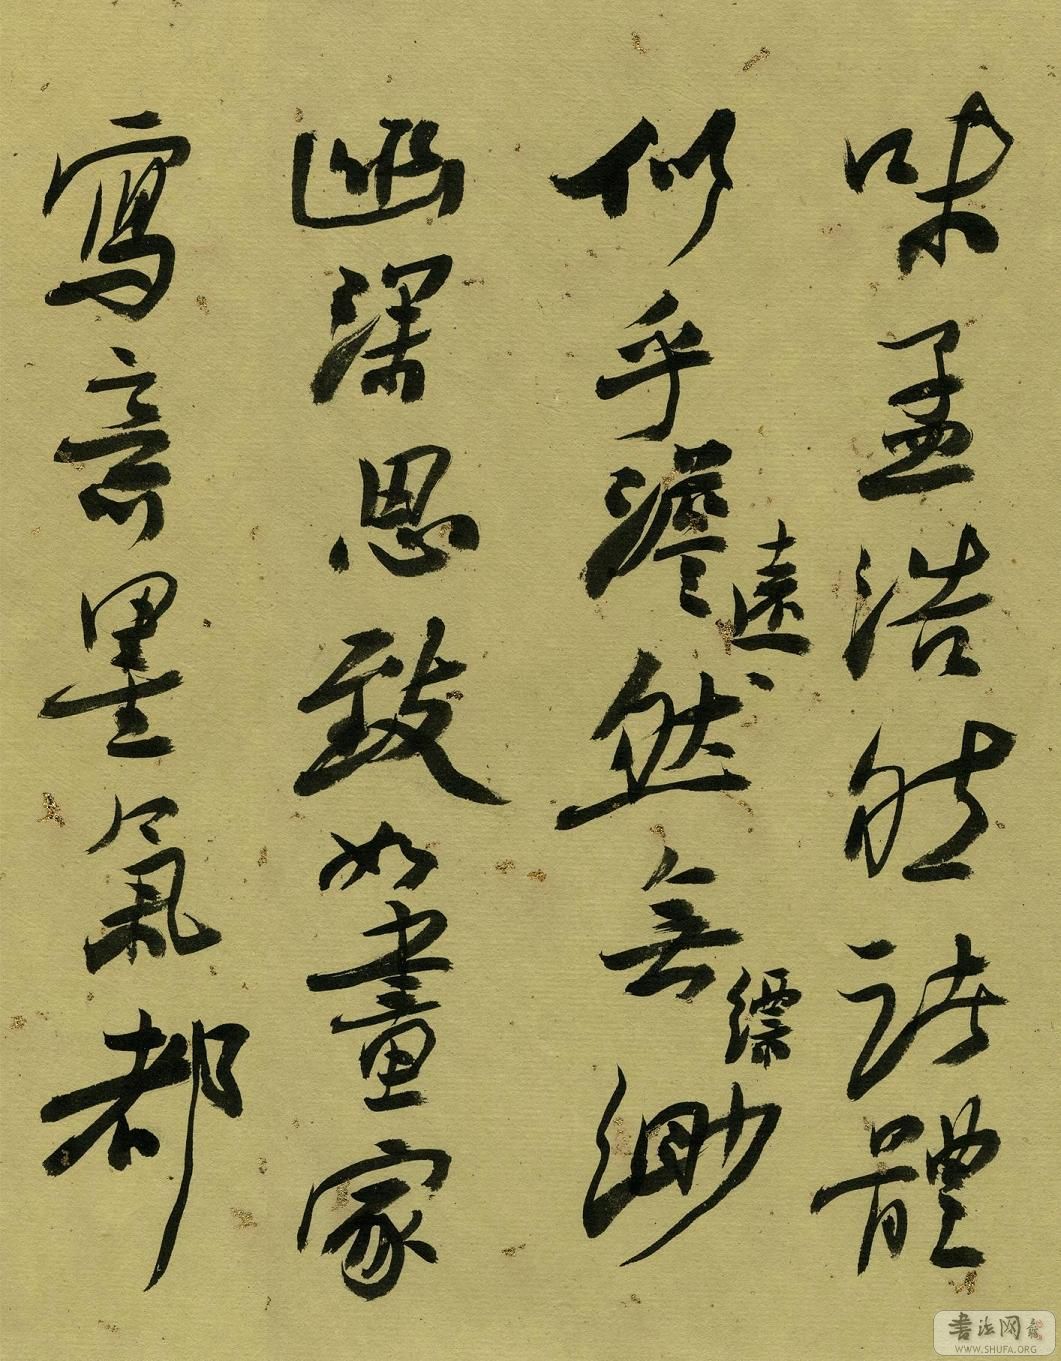 味孟浩然諸體
似乎澹遠然無縹緲
幽深思致如畫家
寫意墨氣都
書法网
WWW.SHUFA.ORG